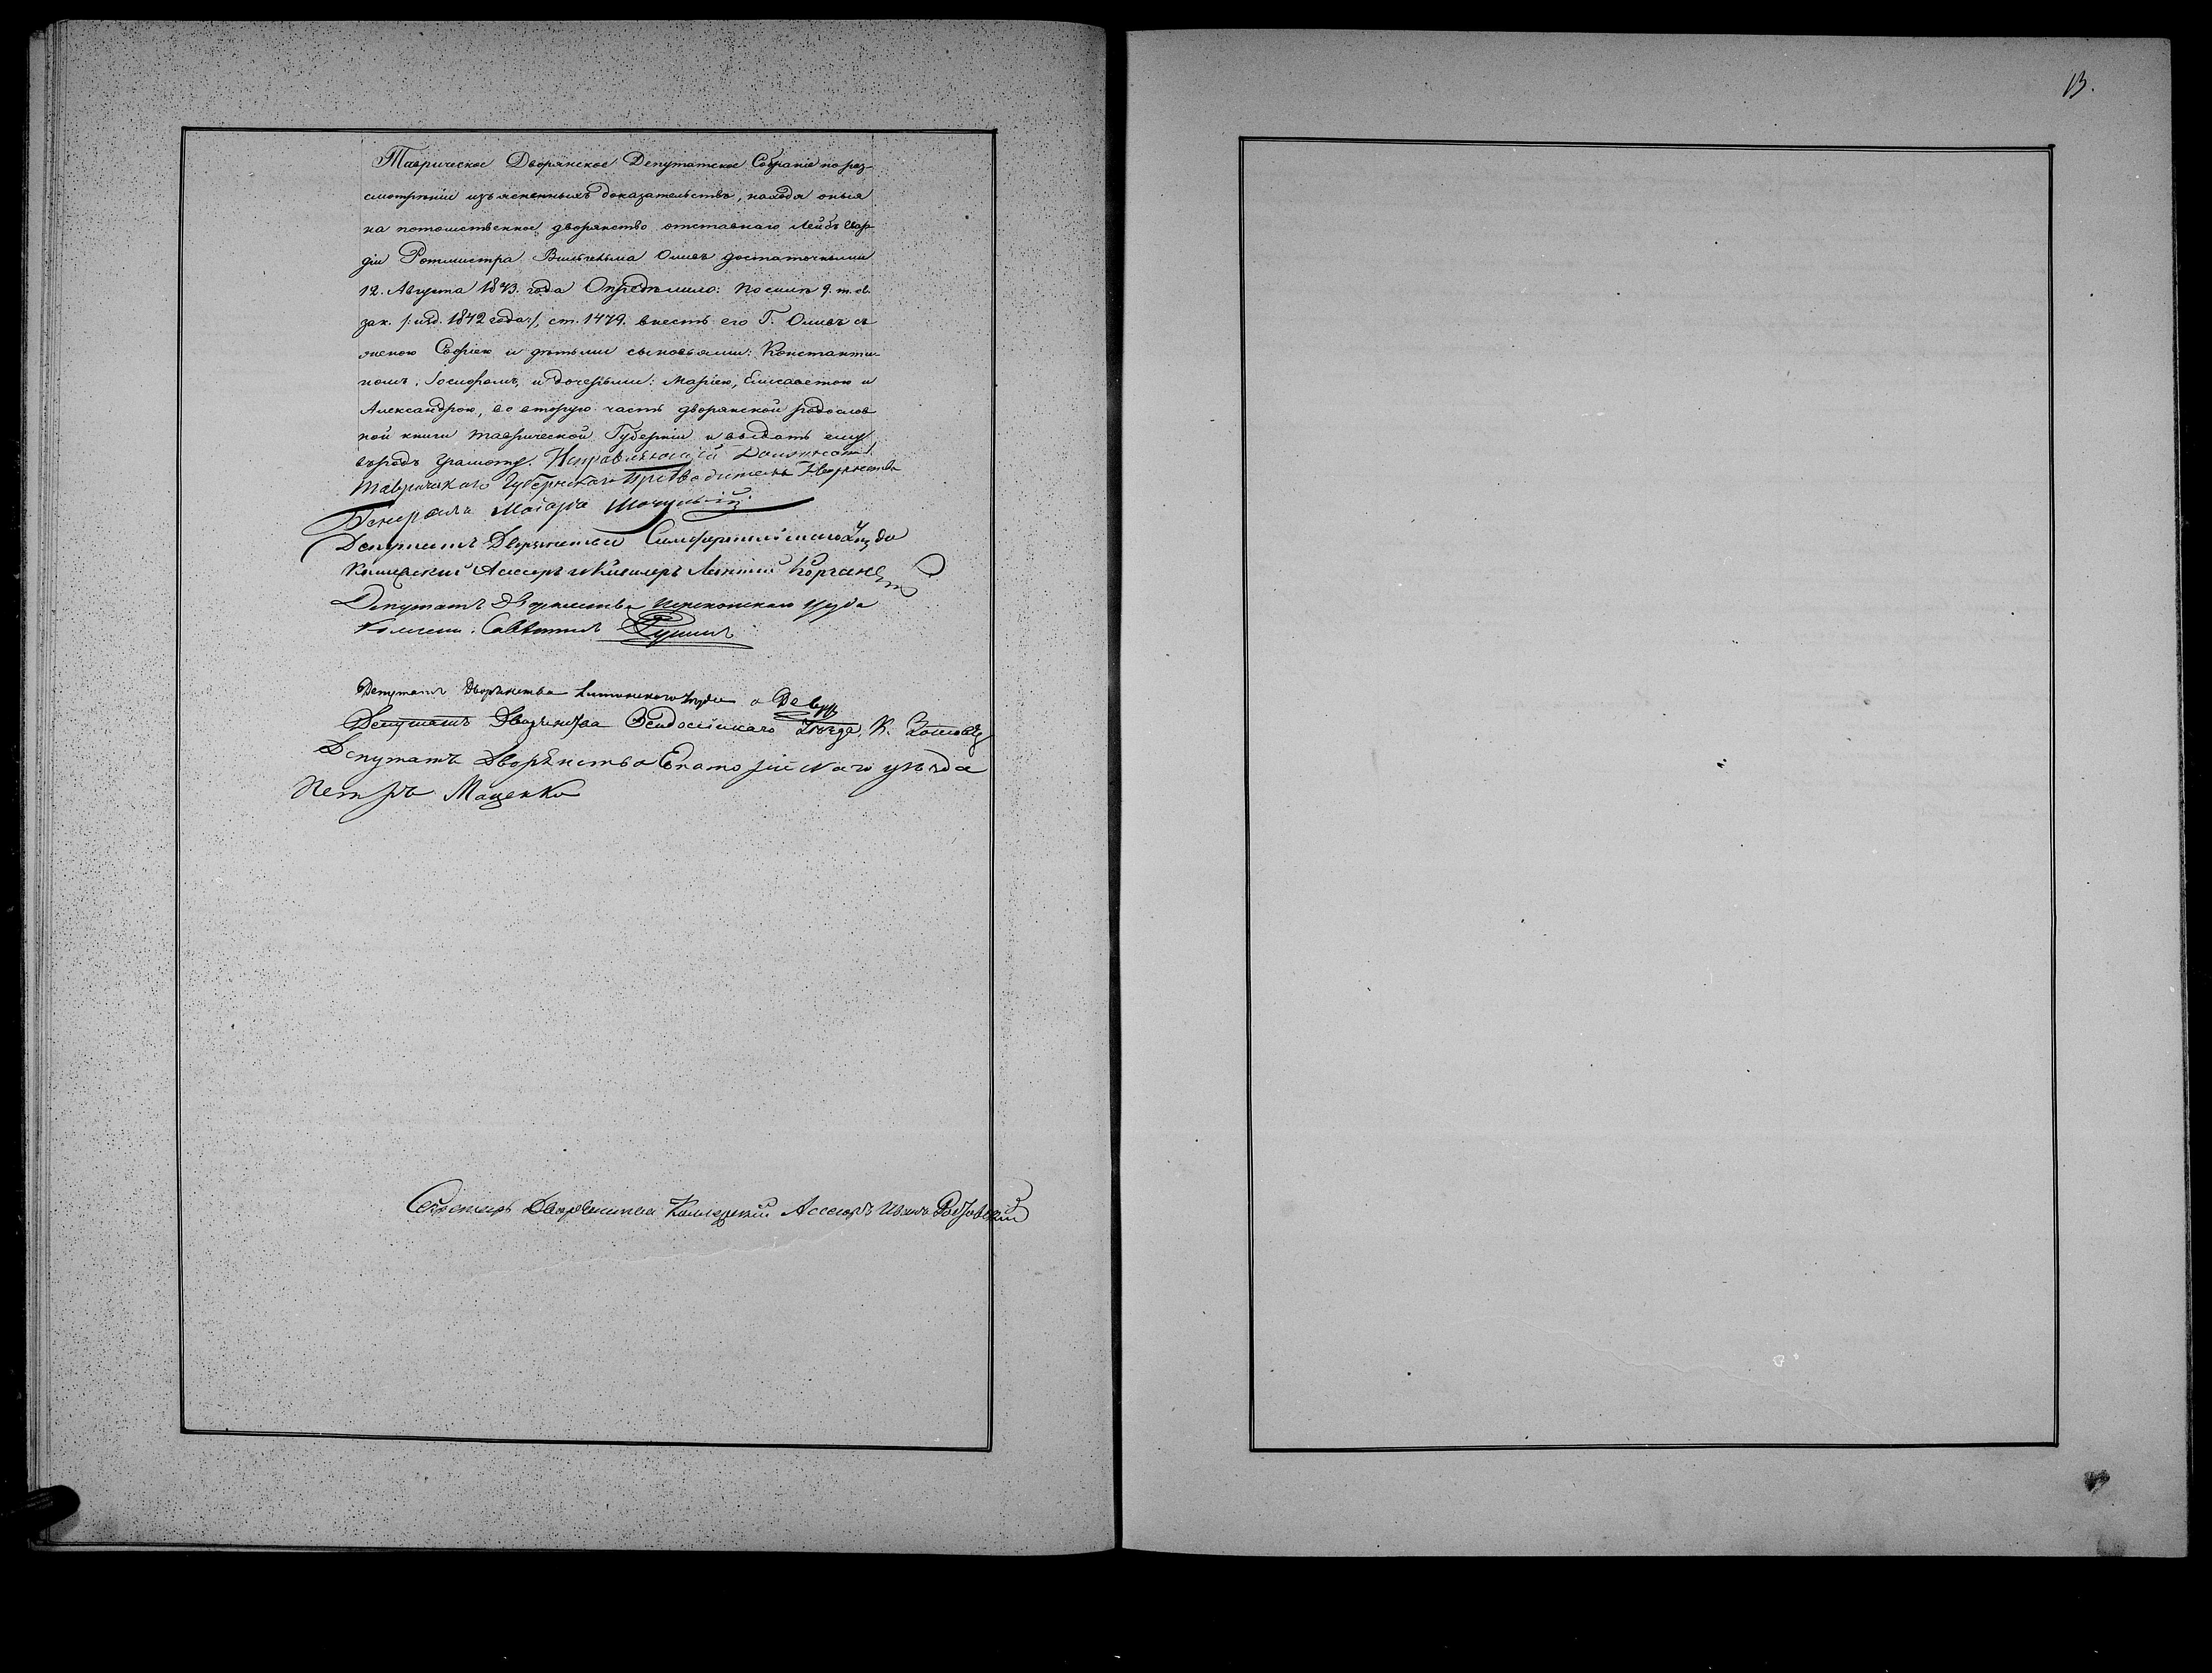 13.
Таврическое Дворянское Депутатское Собрание по раз-
смотрѣнiи изъясненныхъ доказательствъ, находя оныя
на потомственное дворянство отставнаго Лейбъ Гвар-
дiи Ротмистра Вильгельма Оливъ достаточными
12. Августа 1843. года Опредѣлило: по силѣ 9. т. св.
зак. /: изд. 1842 года :/, ст. 1479. внесть его Г. Оливъ съ
женою Софiею и дѣтьми сыновьями: Константи-
номъ, Iосифомъ, и дочерьми: Марiею, Елисаветою и
Александрою, во вторую часть дворянской родослов
ной книги Таврической Губернiи и выдать ему
въ родъ грамоту. Исправляющiй Должность
Таврическаго Губернскаго Предводителя Дворянства
Генералъ Маiоръ
Депутатъ Дворянства Симферопольскаго Уѣзда
Коллежскiй Асессоръ и Кавалеръ
Депутатъ Дворянства Перекопскаго уѣзда
Коллеж. Совѣтникъ
Депутатъ Дворянства Ялтинскаго Уѣзда
Депутатъ Дворянства Феодосiйскаго Уѣзда, К.
Депутатъ Дворянства Евпаторiйскаго уѣзда
Петръ Маценко
Секретарь Дворянства Коллежскiй Ассесоръ Иванъ